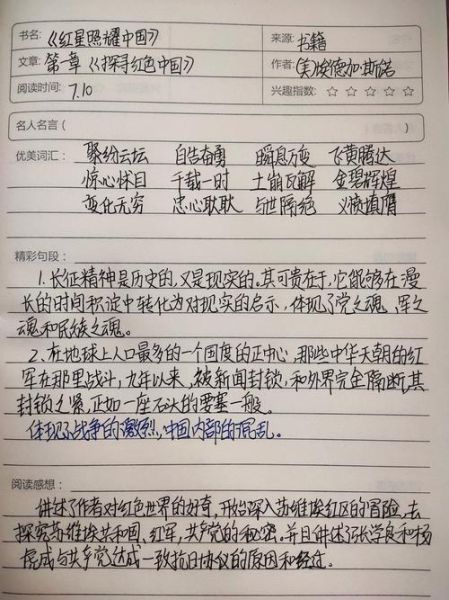 书名:《红星照耀中国》 来源:书籍
文章:第一章《探寻红色中国》 作者:(美)埃德加·斯诺
阅读时间:7.10 兴趣指数:☆ ☆ ☆ ☆ ☆
名人名言( )
优美词汇: 聚纷云坛 自告奋勇 瞬息万变 飞黄腾达
惊心怵目 千载一时 土崩瓦解 金碧辉煌
变化无穷 忠心耿耿 与世隔绝 义愤填膺
精彩句段:
1.长征精神是历史的,又是现实的。其可贵在于,它能够在漫
长的时间积淀中转化为对现实的启示,体现了党之魂、军之
魂和民族之魂。
2.在地球上人口最多的一个国度的正中心,那些中华天朝的红
军在那里战斗,九年以来,被新闻封锁,和外界完全隔断,其
封锁之紧,正如一座石头的要塞一般。
体现了战争的激烈,中国内部的混乱。
阅读感想:
讲述了作者对红色世界的好奇,开始深入苏维埃红区的冒险,去
探究苏维埃共和国、红军,共产党的秘密。并且讲述了张学良和杨
虎成与共产党达成一致抗日协议的原因和经过。